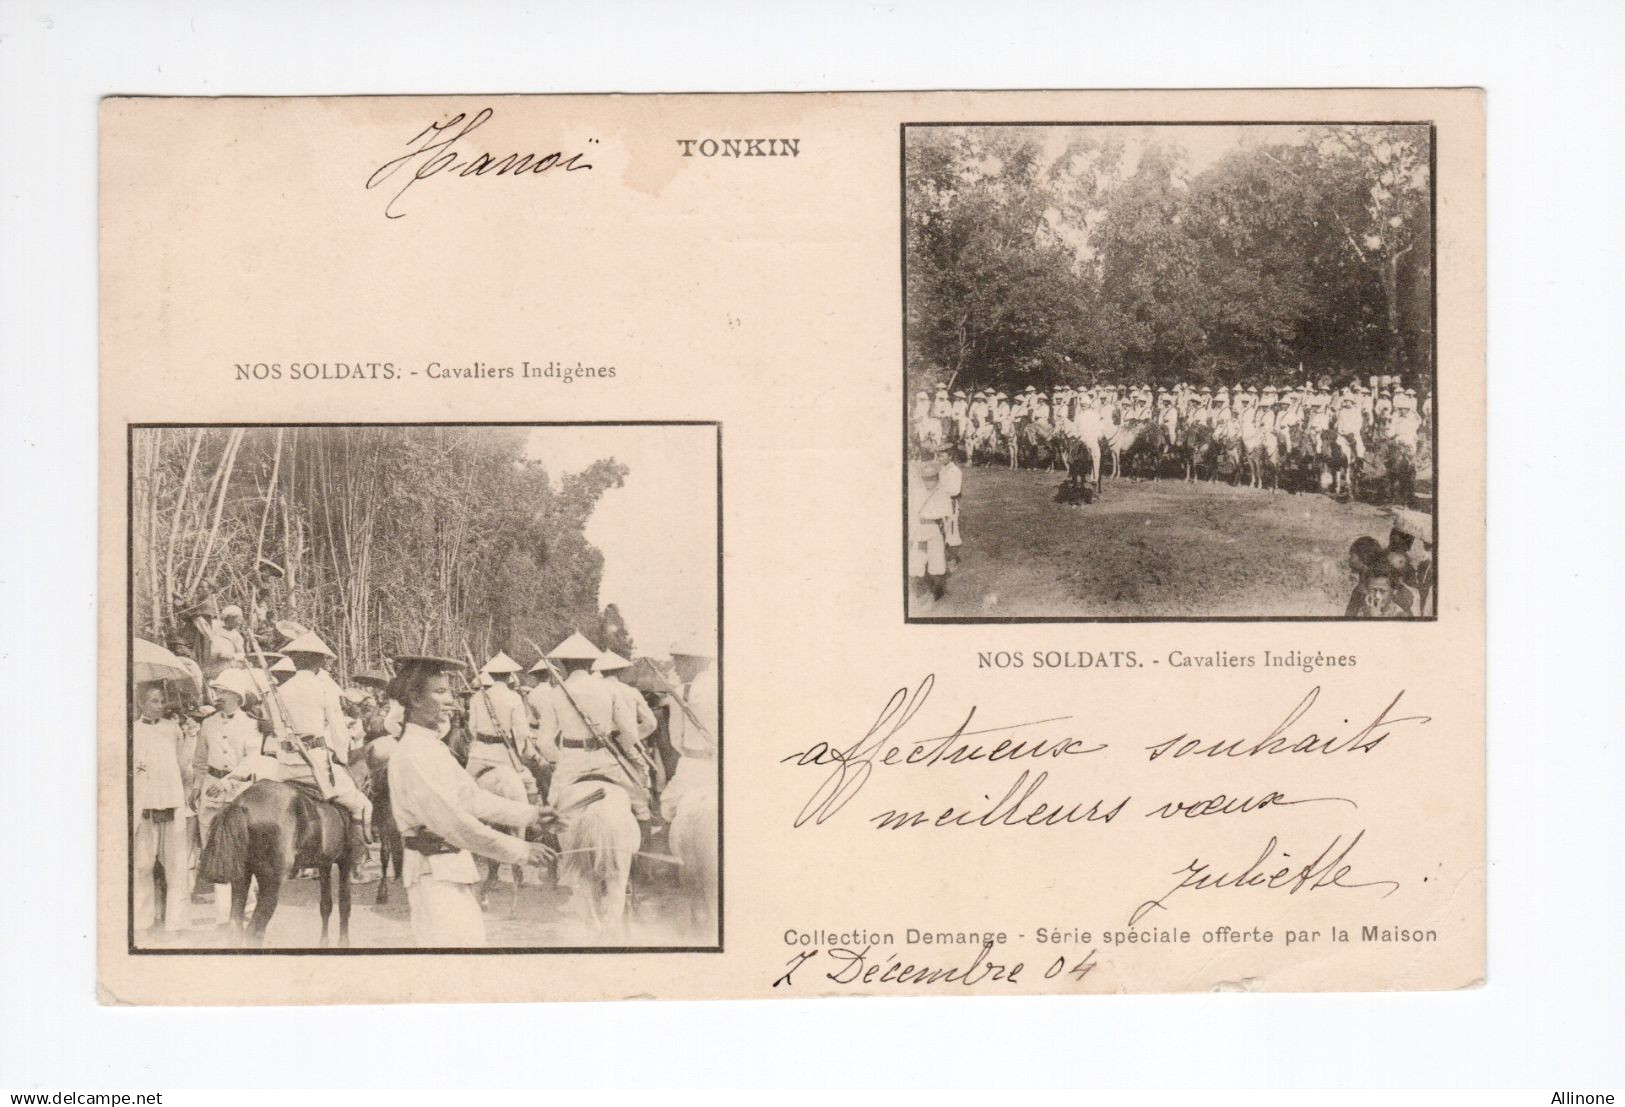 Hanoï
TONKIN
NOS SOLDATS. - Cavaliers Indigènes
NOS SOLDATS. - Cavaliers Indigènes
affectueux souhaits
meilleurs vœux
Juliette.
Collection Demange - Série spéciale offerte par la Maison
7 Décembre 04
www.delcampe.net
Allinone